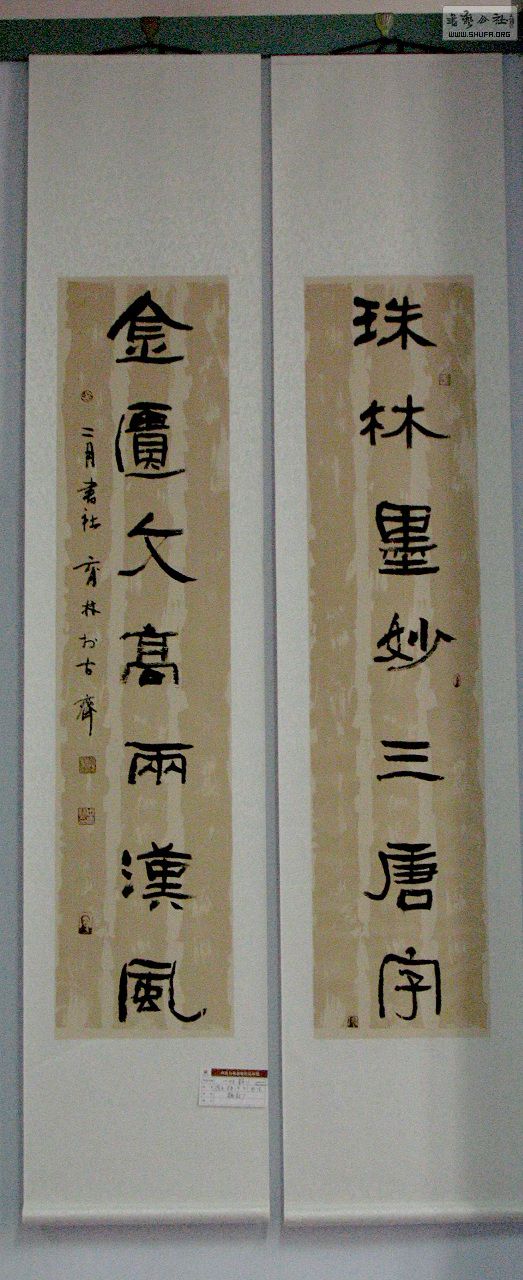 珠林墨妙三唐字
金匱文高兩漢風
二月書社 育林於古齊
書艺公社
WWW.SHUFA.ORG